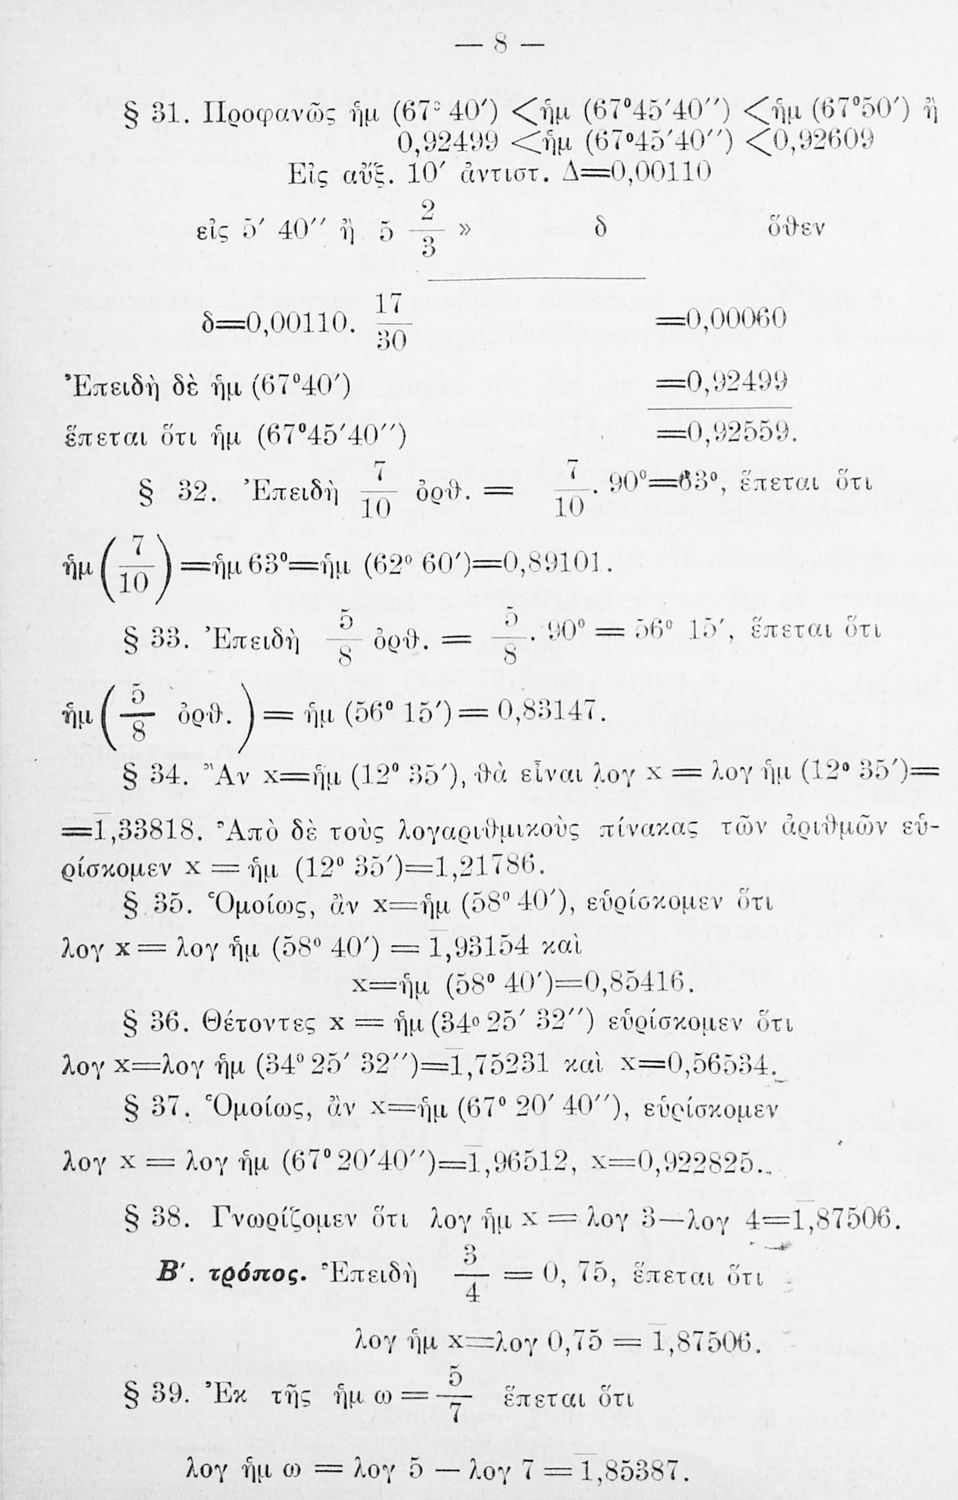 — 8 —
§ 31. Προφανῶς ἡμ (67° 40′) <ἡμ (67°45′40″) <ἡμ (67°50′) ἢ
0,92499 <ἡμ (67°45′40″) <0,92609
Εἰς αὔξ. 10′ ἀντιστ. Δ=0,00110
εἰς 5′ 40″ ἢ 5 2/3 » δ ὅθεν
δ=0,00110. 17/30 =0,00060
Ἐπειδὴ δὲ ἡμ (67°40′) =0,92499
ἕπεται ὅτι ἡμ (67°45′40″) =0,92559.
§ 32. Ἐπειδὴ 7/10 ὀρθ. = 7/10. 90°=63°, ἕπεται ὅτι
ἡμ (7/10) =ἡμ 63°=ἡμ (62° 60′)=0,89101.
§ 33. Ἐπειδὴ 5/8 ὀρθ. = 5/8. 90° = 56° 15′, ἕπεται ὅτι
ἡμ (5/8 ὀρθ.) = ἡμ (56° 15′) = 0,83147.
§ 34. Ἂν x=ἡμ (12° 35′), θὰ εἶναι λογ x = λογ ἡμ (12° 35′)=
=1̅,33818. Ἀπὸ δὲ τοὺς λογαριθμικοὺς πίνακας τῶν ἀριθμῶν εὑ-
ρίσκομεν x = ἡμ (12° 35′)=1,21786.
§ 35. Ὁμοίως, ἂν x=ἡμ (58° 40′), εὑρίσκομεν ὅτι
λογ x = λογ ἡμ (58° 40′) = 1̅,93154 καὶ
x=ἡμ (58° 40′)=0,85416.
§ 36. Θέτοντες x = ἡμ (34° 25′ 32″) εὑρίσκομεν ὅτι
λογ x=λογ ἡμ (34° 25′ 32″)=1̅,75231 καὶ x=0,56534.
§ 37. Ὁμοίως, ἂν x=ἡμ (67° 20′ 40″), εὑρίσκομεν
λογ x = λογ ἡμ (67° 20′40″)=1̅,96512, x=0,922825.
§ 38. Γνωρίζομεν ὅτι λογ ἡμ x = λογ 3—λογ 4=1̅,87506.
Β′. τρόπος. Ἐπειδὴ 3/4 = 0, 75, ἕπεται ὅτι
λογ ἡμ x=λογ 0,75 = 1̅,87506.
§ 39. Ἐκ τῆς ἡμ ω = 5/7 ἕπεται ὅτι
λογ ἡμ ω = λογ 5 — λογ 7 = 1̅,85387.